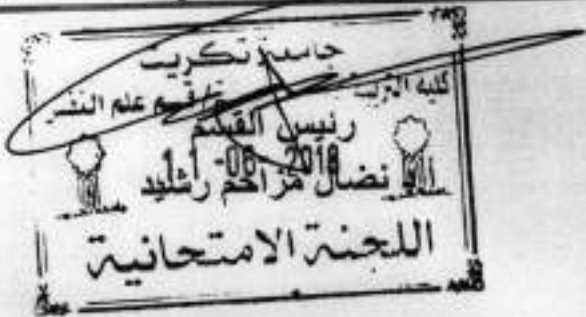 جامعة تكريت
كلية التربية قسم علم النفس
رئيس القسم
11-06-2018
نضال مزاحم رشيد
اللجنة الامتحانية